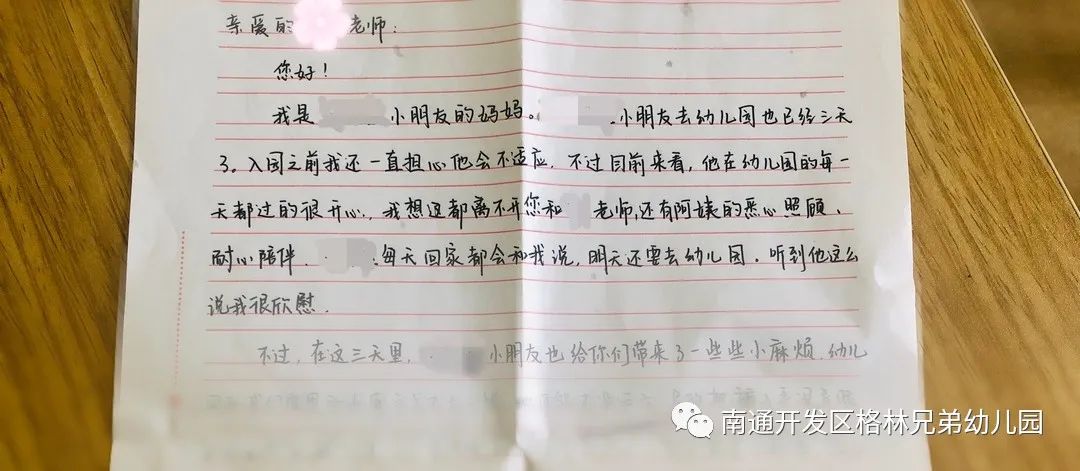 亲爱的 老师:
您好!
我是 小朋友的妈妈。 小朋友去幼儿园也已经三天
了。入园之前我还一直担心他会不适应,不过目前来看,他在幼儿园的每一
天都过的很开心,我想这都离不开您和 老师,还有阿姨的悉心照顾、
耐心陪伴. 每天回家都会和我说,明天还要去幼儿园。听到他这么
说我很欣慰.
不过,在这三天里, 小朋友也给你们带来了一些些小麻烦,幼儿
南通开发区格林兄弟幼儿园